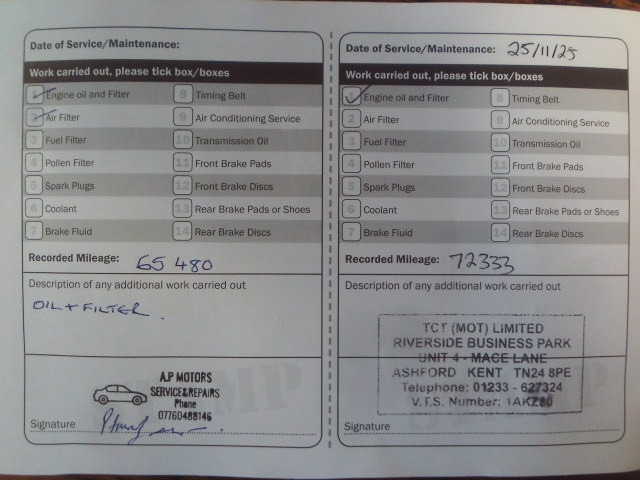 Date of Service/Maintenance:
Work carried out, please tick box/boxes
1 Engine oil and Filter
2 Air Filter
3 Fuel Filter
4 Pollen Filter
5 Spark Plugs
6 Coolant
7 Brake Fluid
8 Timing Belt
9 Air Conditioning Service
10 Transmission Oil
11 Front Brake Pads
12 Front Brake Discs
13 Rear Brake Pads or Shoes
14 Rear Brake Discs
Recorded Mileage: 65 480
Description of any additional work carried out
OIL + FILTER.
A.P MOTORS
SERVICE&REPAIRS
Phone
07760488146
Signature
Date of Service/Maintenance: 25/11/25
Work carried out, please tick box/boxes
1 Engine oil and Filter
2 Air Filter
3 Fuel Filter
4 Pollen Filter
5 Spark Plugs
6 Coolant
7 Brake Fluid
8 Timing Belt
9 Air Conditioning Service
10 Transmission Oil
11 Front Brake Pads
12 Front Brake Discs
13 Rear Brake Pads or Shoes
14 Rear Brake Discs
Recorded Mileage: 72333
Description of any additional work carried out
TCT (MOT) LIMITED
RIVERSIDE BUSINESS PARK
UNIT 4 - MACE LANE
ASHFORD KENT TN24 8PE
Telephone: 01233 - 627324
V.T.S. Number:
Signature